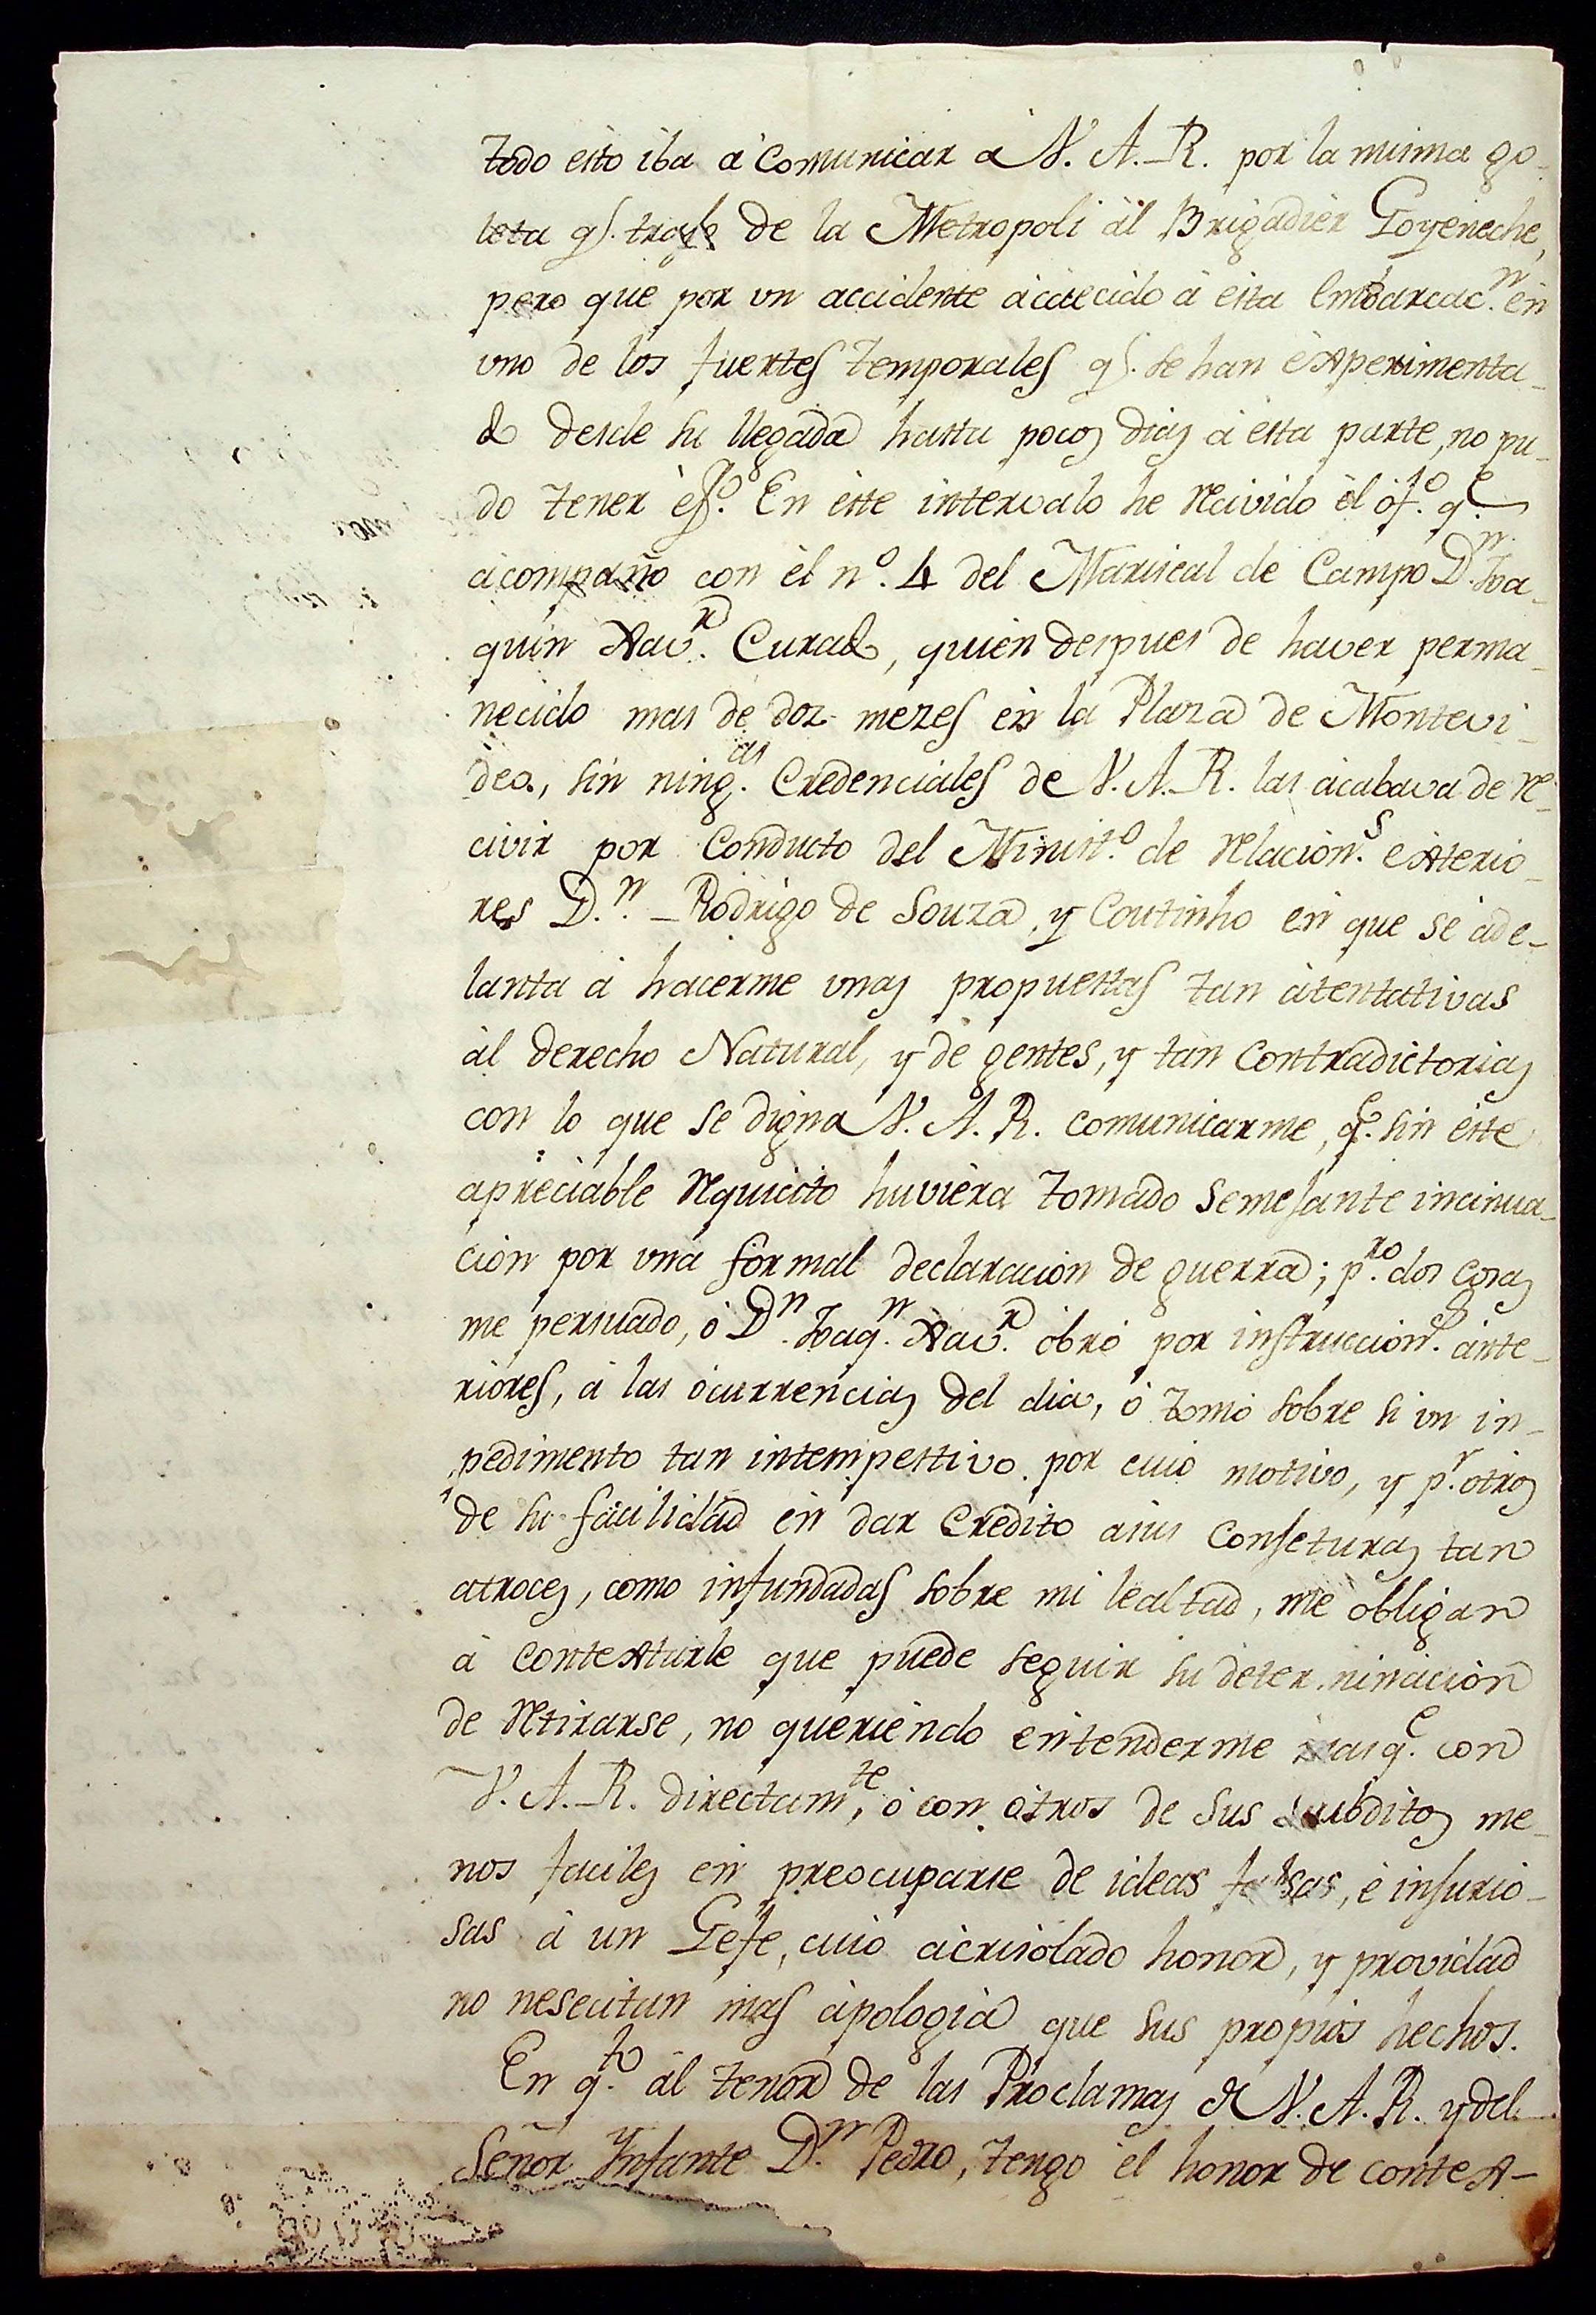 todo esto iba á comunicar a V. A. R. por la misma go-
leta qe. traxo de la Metropoli ál Brigadiér Goyeneche,
pero que por un accidente ácaecido á esta Embarcacn. én
uno de los fuertes temporales qe. se han éxperimenta-
do desde su llegada hasta pocos dias á esta parte, no pu-
do tener éfto. En éste intervalo he recivido él ófo. qe.
ácompaño con él no. 4 del Mariscal de Campo Dn. Joa-
quin Xavr. Curado, quién despues de haver perma-
necido mas de dos mezes én la Plaza de Montevi-
deo, sin ningas. Credenciales de V. A. R. las ácabava de re-
civir por conducto del Ministo. de relacions. exterio-
res Dn. Rodrigo de Souza, y Coutinho en que se áde-
lanta á hacerme unas propuestas tan átentativas
ál derecho Natural, y de gentes, y tan contradictorias
con lo que se digna V. A. R. comunicarme, qe. sin éste
apreciable requicito huviéra tomado semejante incinua-
ción por una formal declaracion de guerra; pro. dos cosas
me persuado, ó Dn. Joaqn. Xavr. óbró por instruccions. ánte-
rióres, á las ócurrencias del dia, ó tomó sobre si un in-
pedimento tan intempestivo por cuio motivo, y pr. otros
de su facilidad én dar credito asus conjeturas tan
atroces, como infundadas sobre mi lealtad, me óbligan
á contextarle que puede seguir su determinación
de retirarse, no queriéndo entenderme mas qe. con
V. A. R. directamte, ó con ótros de sus subditos me-
nos faciles én preocuparse de ideas falsas, é injurio-
sas á un Gefe, cuio ácrisólado honor, y providad
no nesecitan mas ápologia que sus propios hechos.
En qto. ál tenor de las Proclamas de V. A. R. y del
Señor Ynfante Dn. Pedro, tengo él honor de contex-